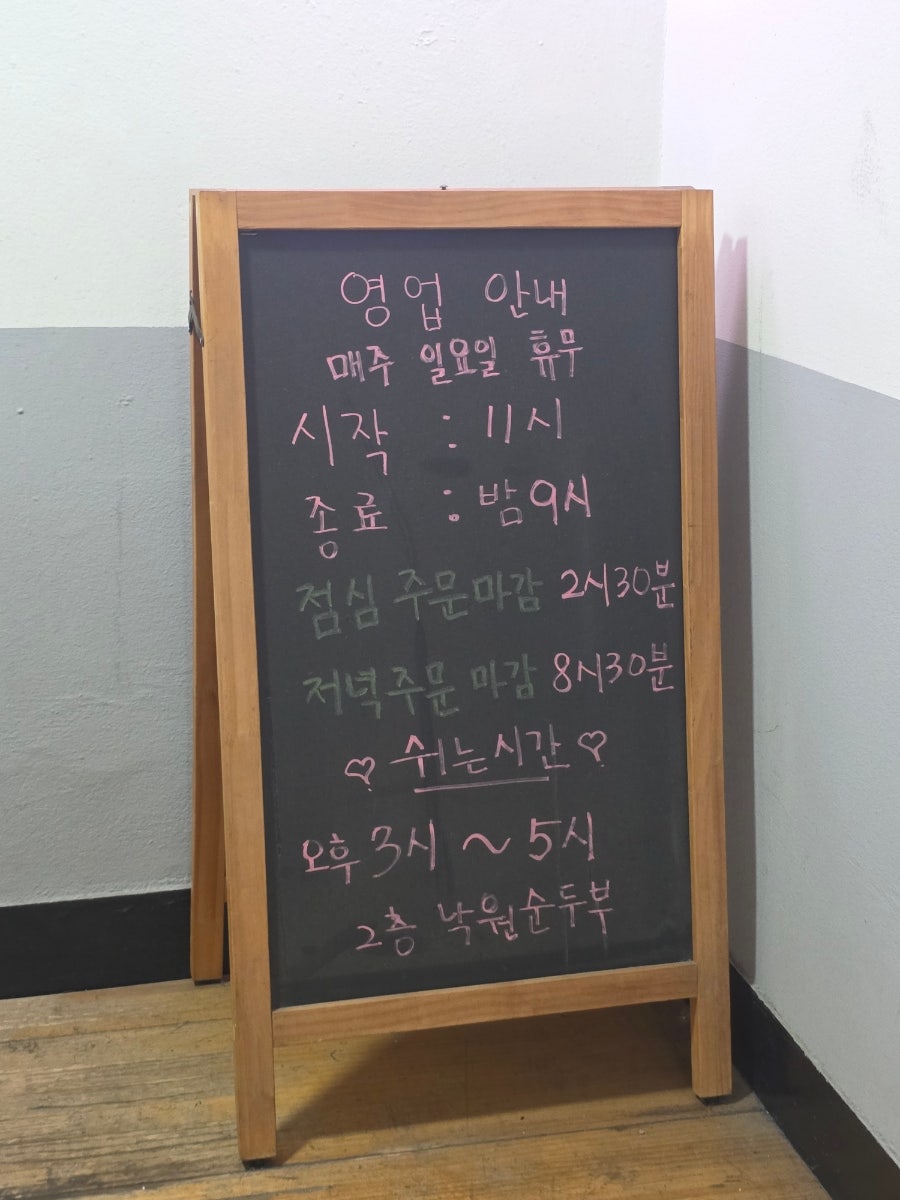 영업 안내
매주 일요일 휴무
시작 : 11시
종료 : 밤 9시
점심 주문마감 2시30분
저녁주문 마감 8시30분
♡ 쉬는시간 ♡
오후 3시 ~ 5시
2층 낙원순두부